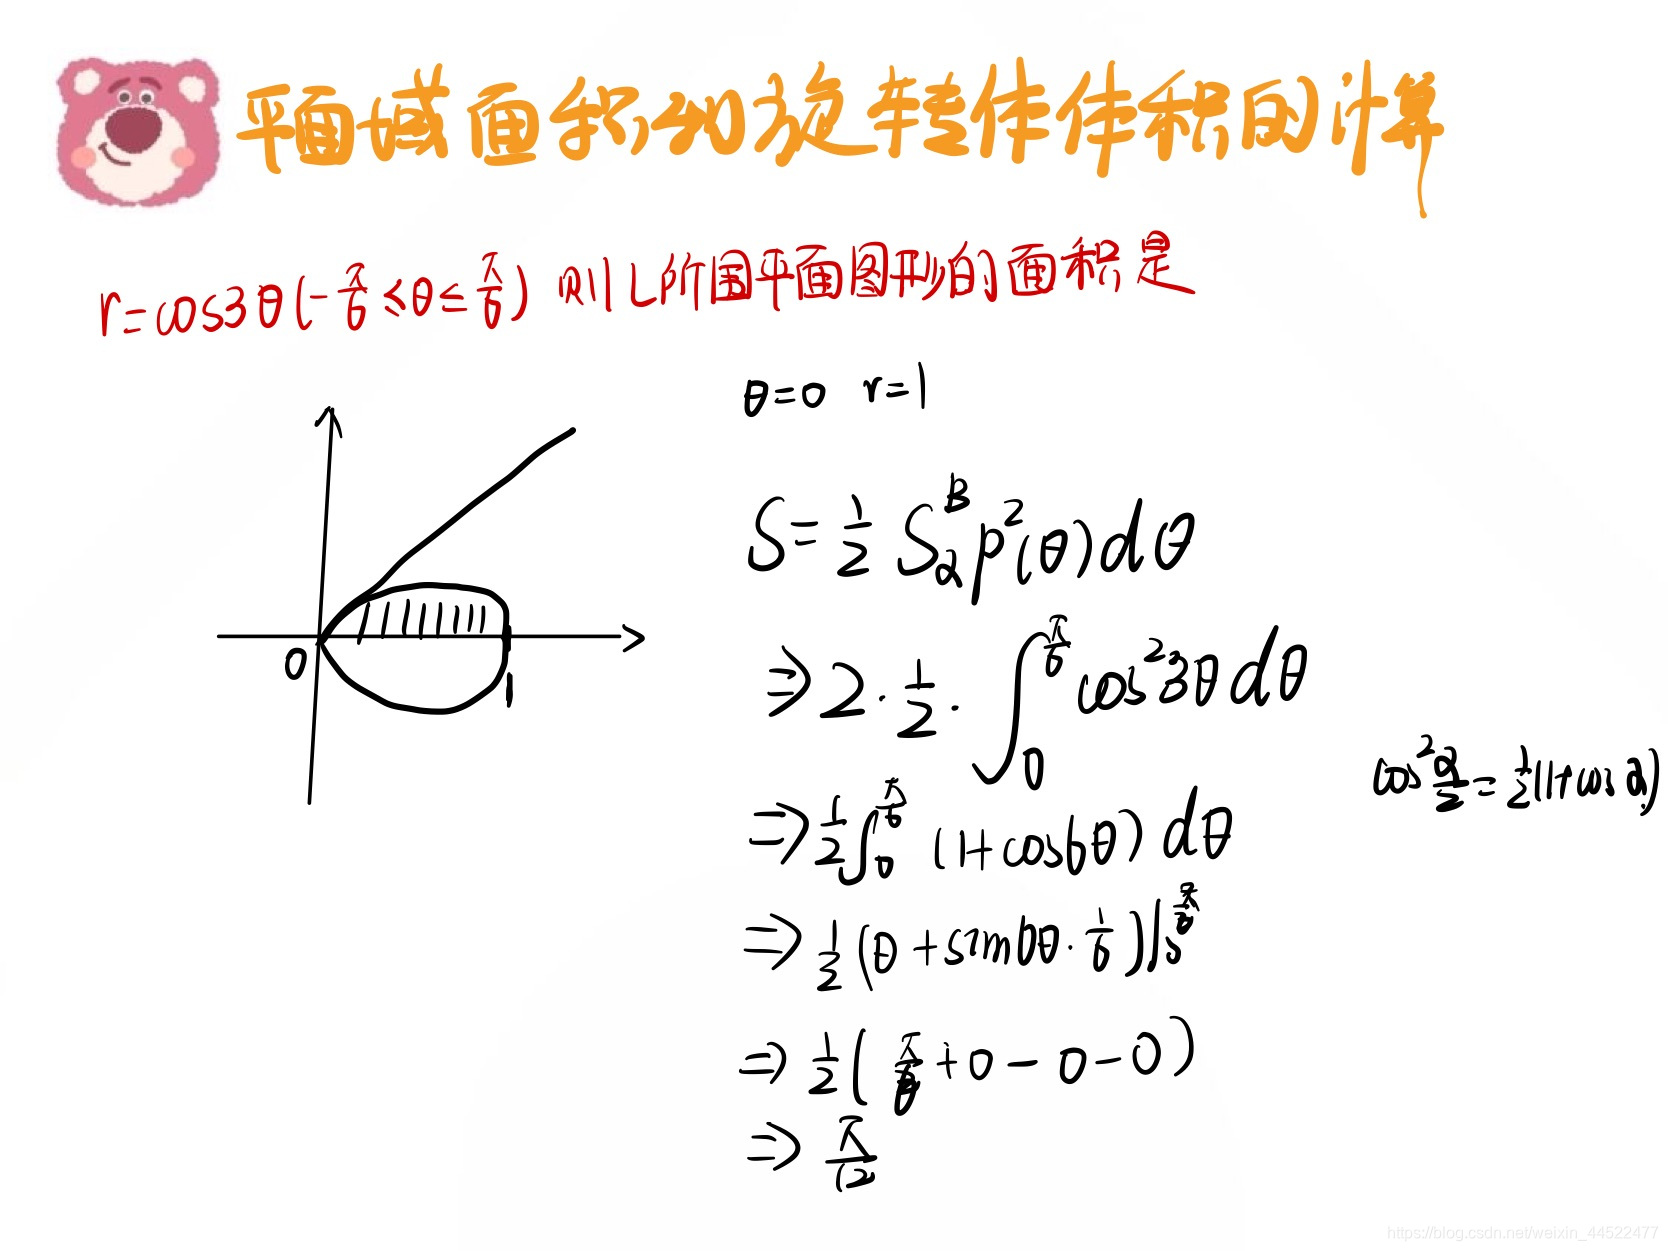 平面域面积和旋转体体积的计算
r=cos3θ(-π/6≤θ≤π/6) 则L所围平面图形的面积是
θ=0 r=1
S=1/2 ∫_α^β ρ²(θ)dθ
⇒2·1/2·∫_0^{π/6} cos²3θdθ
cos²α/2=1/2(1+cosα)
⇒1/2∫_0^{π/6} (1+cos6θ)dθ
⇒1/2(θ+sin6θ·1/6)|_0^{π/6}
⇒1/2(π/6+0-0-0)
⇒π/12
0
1
https://blog.csdn.net/weixin_44522477